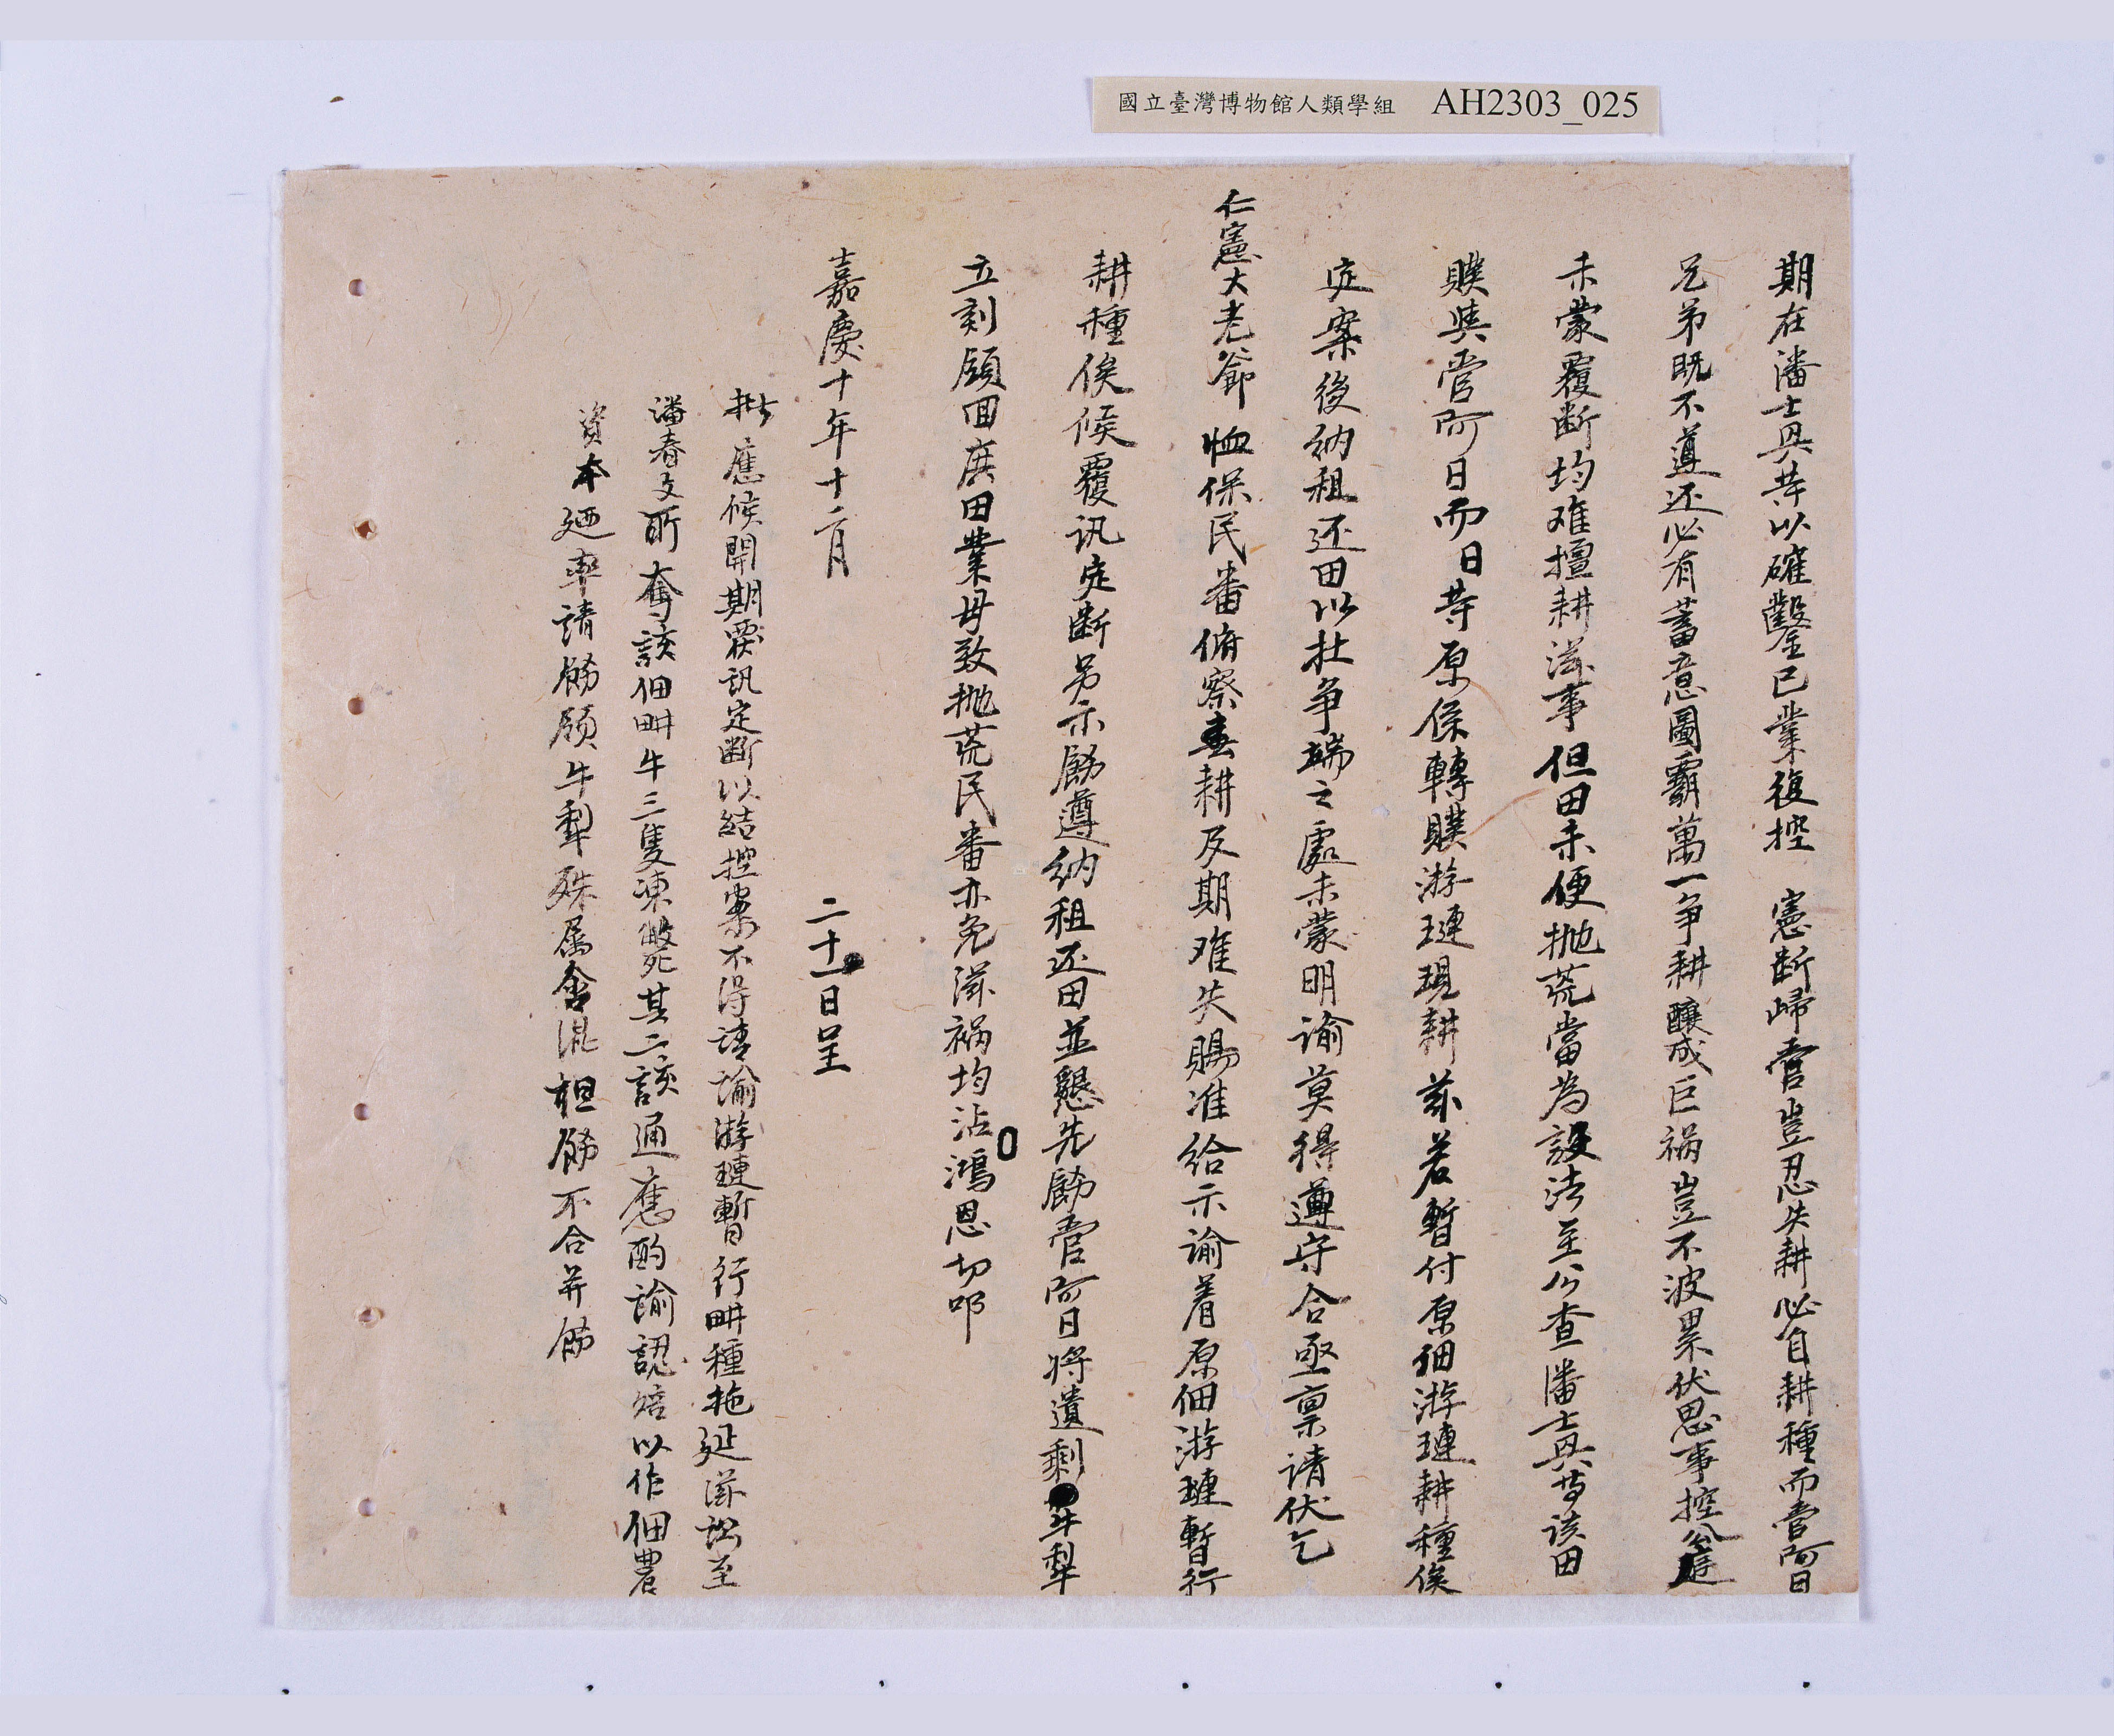 國立臺灣博物館人類學組 AH2303_025
期在潘士興等以確鑿已業復控 憲断歸管豈忍失耕必自耕種而管阿日
兄弟既不遵还必有蓄意圖霸萬一争耕釀成巨祸豈不波累伏思事控公庭
未蒙覆断均难擅耕滋事但田未便抛荒當為設法至公查潘士興等该田
贌與管阿日而日等原係轉贌游璉現耕茲若暫付原佃游璉耕種俟
定案後納租还田以杜争端之處未蒙明谕莫得遵守合亟禀请伏乞
仁憲大老爺 恤保民番俯察春耕及期难失賜准给示谕着原佃游璉暫行
耕種俟候覆讯定断另示飭遵納租还田並懇先飭管阿日将遺剩牛犁
立刻領回庶田業毋致抛荒民番亦免滋祸均沾鴻恩切叩
嘉慶十年十二月 二十一日呈
批 應候開期覆訊定断以結控案不得請谕游璉暫行畊種拖延滋訟至
潘春文所奪該佃畊牛三隻凍斃死其二該通應酌谕認賠以作佃農
资本廼率請飭領牛犁殊属含混 飭不合并飭